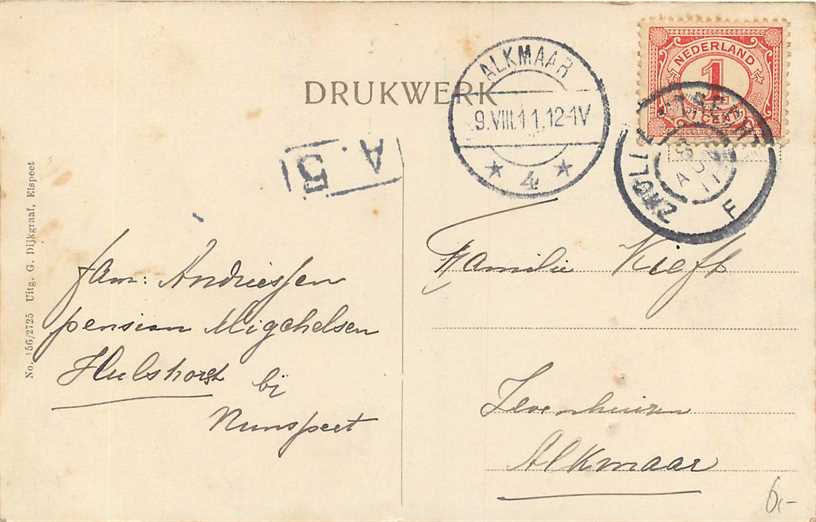 DRUKWERK
ALKMAAR
9.VIII.11.12-1V
4
NEDERLAND
1
CENT
ZWOLLE
AUG
11
F
A. 5
No. 156/2725 Uitg. G. Dijkgraaf, Elspeet
fam: Andriessen
pension Migchelsen
Hulshorst bij
Nunspeet
Familie Kieft
Zevenhuizen
Alkmaar
6,-